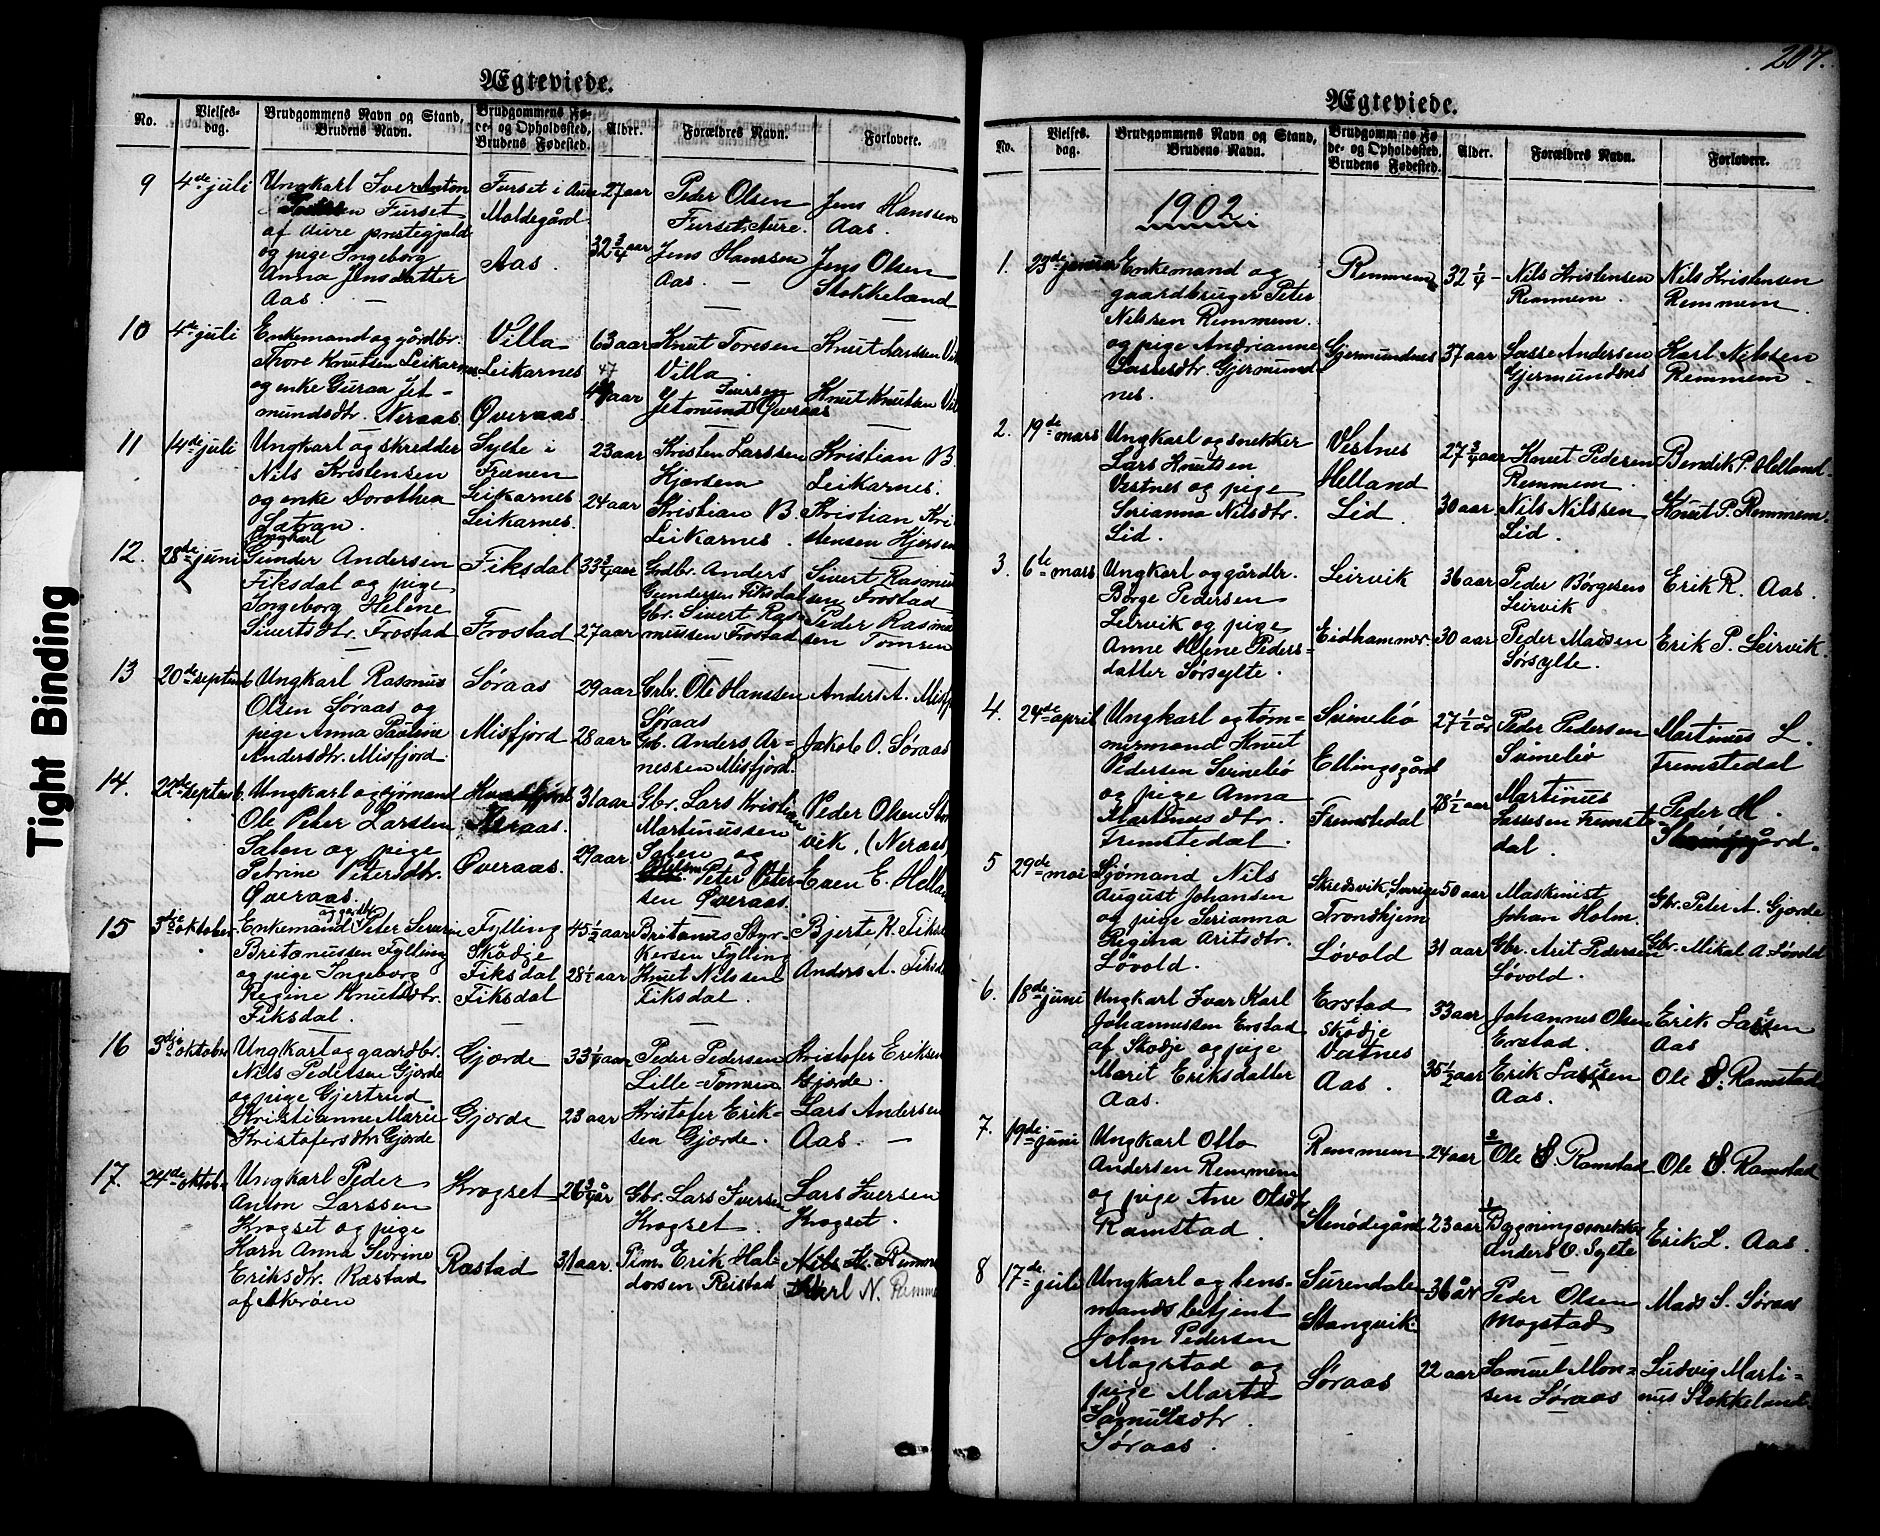 Tight Binding
Ægteviede.
No.
Vielses-dag.
Brudgommens Navn og Stand, Brudens Navn.
Brudgommens Fø-de- og Opholdssted, Brudens Fødested.
Alder.
Forældres Navn.
Forlovere.
9
4de juli
Ungkarl Iver Anton
Furset
af Aure prestegjeld
og pige Ingeborg
Anna Jensdatter
Aas. —
Furset i Aure
Moldegård
Aas.
27 aar
32 3/4 aar
Peder Olsen
Furset, Aure.
Jens Hanssen
Aas. —
Jens Hanssen
Aas.
Jens Olsen
Stokkeland
10
4de juli
Enkemand og gårdbr.
Thore Knutsen Leikarnes
og enke Guraa Jet-
mundsdtr. Neraas.
Villa
Leikarnes
Øveraas.
63 aar
47
aar
Knut Toresen
Villa.
Iversen
Jetmund Øveraas
Knut Larssen
Knut Knutsen
11
14de juli
Ungkarl og skredder
Nils Kristensen
og enke Dorothea
Lætran.
Sylte i
Frænen
Leikarnes
Leikarnes.
23 aar
24 aar
Kristen Larssen
Hjorsem
Kristian B.
Leikarnes.
Kristian B.
Leikarnes.
Kristian Kri
stensen Hjorsem
12.
28de juni
Ungkarl
Gunder Andersen
Fiksdal og pige,
Ingeborg Helene
Sivertsdtr. Frostad
Fiksdal
Frostad
33 3/4 aar
27 aar
Grdbr. Anders
Gundersen Fiksdal
Gbr. Sivert Ras-
mussen Frostad
Sivert Rasmus
sen Frostad
Peder Rasmu
sen Tomren
13
20de septemb.
Ungkarl Rasmus
Olsen Søraas og
pige Anna Pauline
Andersdtr. Misfjord.
Søraas
Misfjord
29 aar
28 aar
Grb. Ole Hanssen
Søraas
Gb. Anders Ar-
nessen Misfjord.
Anders A. Misfj
Jakob O. Søraas
14.
22de septemb.
Ungkarl og sjømand
Ole Peter Larssen
Salen og pige
Petrine Petersdtr.
Øveraas.
Neraas.
Øveraas.
31 aar
29 aar
Gbr. Lars Kristian
Martinussen
Salen og
Peter Peter-
sen Øveraas.
Peder Olsen
vik. (Neraas
Even E. Hellan
15
3die oktober
og gardbr.
Enkemand Peter Severin
Britanussen Fylling
og pige Ingeborg
Regine Knutsdtr.
Fiksdal.
Fylling
Skodje
Fiksdal
Fiksdal
45 1/2 aar
28 1/2 aar
Britanus Styr-
kersen Fylling
Knut Nilssen
Fiksdal.
Bjerte K. Fiks
Anders A. Fiksd
16
3die oktober
Ungkarl og gaardbr.
Nils Pedersen Gjorde
og pige Gjertrud
Kristianne Marie
Kristofersdtr. Gjorde
Gjorde
Gjorde
33 1/4 aar
23 aar
Peder Pedersen
Lille-Tomren
Kristofer Erik-
sen Gjorde.
Kristofer Eriksen
Gjorde.
Lars Andersen
Aas. —
17.
24de oktob.
Ungkarl Peder
Anton Larssen
Krogset og pige
Karn Anna Sevrine
Eriksdtr. Rastad
af Akerøen
Krogset
Rastad
26 3/4 år
31 aar.
Gbr. Lars Iversen
Krogset.
Pim. Erik Hal-
dorsen Reistad
Lars Iversen
Krogset.
Nils K. Remm
Karl N. Remme
207.
Ægteviede.
No.
Vielses-dag.
Brudgommens Navn og Stand, Brudens Navn.
Brudgommens Fø-de- og Opholdssted, Brudens Fødested.
Alder.
Forældres Navn.
Forlovere.
1902.
1.
23de januar
Enkemand og
gaardbruger Peter
Nilssen Remmem.
og pige Andrianne
Lassesdtr. Gjermund
nes.
Remmem
Gjermundnes
32 1/4 -
37 aar
Nils Kristensen
Remmem.
Lasse Andersen
Gjermundnes
Nils Kristensen
Remmem.
Karl Nilssen
Remmem.
2.
19de mars
Ungkarl og snekker
Lars Knutsen
Vestnes og pige
Serianna Nilsdtr.
Lid.
Vestnes
Helland
Lid.
27 3/4 aar
30 aar
Knut Pedersen
Remmem.
Nils Nilssen
Lid.
Bendik P. Helland.
Knut P. Remmem.
3.
6te mars
Ungkarl og gårdbr.
Børge Pedersen
Leirvik og pige
Anne Helene Peders-
datter Sørsylte.
Leirvik
Eidhammer
36 aar
30 aar
Peder Børgesen
Leirvik
Peder Madsen
Sørsylte.
Erik R. Aas.
Erik P. Leirvik.
4.
24de april
Ungkarl og tøm-
mermand Knut
Pedersen Svinebø
og pige Anna
Martinusdtr.
Fremstedal.
Svinebø
Ellingsgård
Fremstedal
27 1/2 år
28 1/2 aar
Peder Pedersen
Svinebø
Martinus
Lassesen Fremste
dal.
Martinus L.
Fremstedal
Peder M.
5
29de mai
Sjømand Nils
August Johansen
og pige Serianna
Regina Aritsdtr.
Løvold.
Skredsvik, Sverige
Trondhjem
Løvold
50 aar
31 aar
Maskinist
Johan Holm.
Gbr. Arit Pedersen
Løvold.
Gbr. Peter A. Gjorde
Gbr. Mikal A. Løvold
6.
18de juni
Ungkarl Ivar Karl
Johannessen Erstad
af Skodje og pige
Maret Eriksdatter
Aas.
Erstad
Skodje
Vestnes
Aas.
33 aar
35 1/2 aar
Johannes Olsen
Erstad.
Erik Lassesen
Aas.
Erik Lassen
Aas
Ole S. Ramstad
7.
19de juni
Ungkarl Otto
Andersen Remmem
og pige Ane Olsdtr.
Ramstad.
Remmem
Stenødegård
24 aar
23 aar
2
Ole S. Ramstad
1
Bygningssnekker
Anders O. Sylte
Ole S. Ramstad
Erik L. Aas.
8
17de juli
Ungkarl og lens-
mandsbetjent
John Pedersen
Magstad og
pige Marta
Samuelsdtr.
Søraas.
Surendalen
Stangvik
Søraas
36 år
22 aar
Peder Olsen
Mogstad
Samuel Mon-
sen Søraas
Mads S. Søraas
Ludvig Marti-
nus Stokkeland